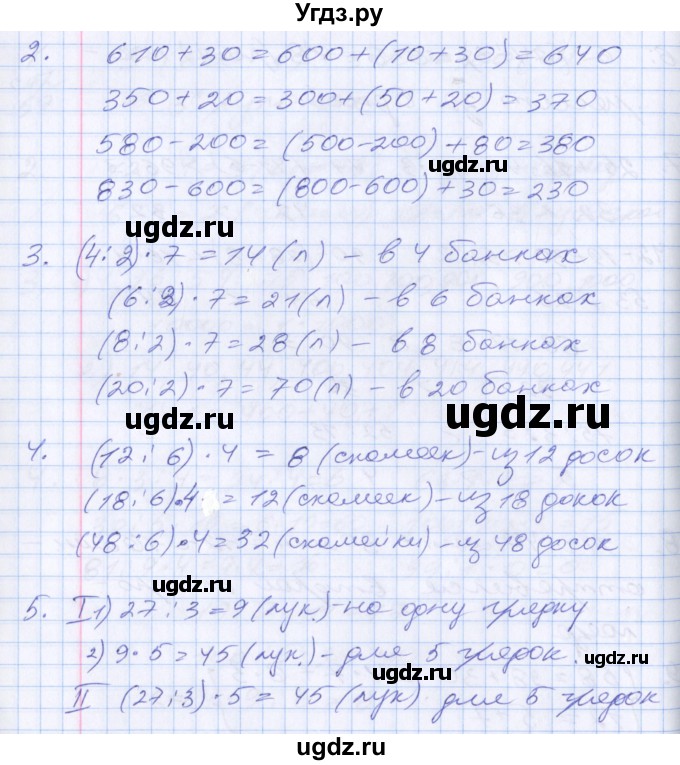 Угдз.ру
2. 610 + 30 = 600 + (10 + 30) = 640
350 + 20 = 300 + (50 + 20) = 370
580 - 200 = (500 - 200) + 80 = 380
ugdz.ru
830 - 600 = (800 - 600) + 30 = 230
ugdz.ru
3. (4 : 2) · 7 = 14 (л) - в 4 банках
(6 : 2) · 7 = 21 (л) - в 6 банках
(8 : 2) · 7 = 28 (л) - в 8 банках
(20 : 2) · 7 = 70 (л) - в 20 банках
ugdz.ru
ugdz.ru
4. (12 : 6) · 4 = 8 (скамеек) - из 12 досок
(18 : 6) · 4 = 12 (скамеек) - из 18 докок
(48 : 6) · 4 = 32 (скамейки) - из 48 досок
ugdz.ru
5. I 1) 27 : 3 = 9 (лук.) - на одну грядку
2) 9 · 5 = 45 (лук.) - для 5 грядок
ugdz.ru
II (27 : 3) · 5 = 45 (лук) для 5 грядок
ugdz.ru